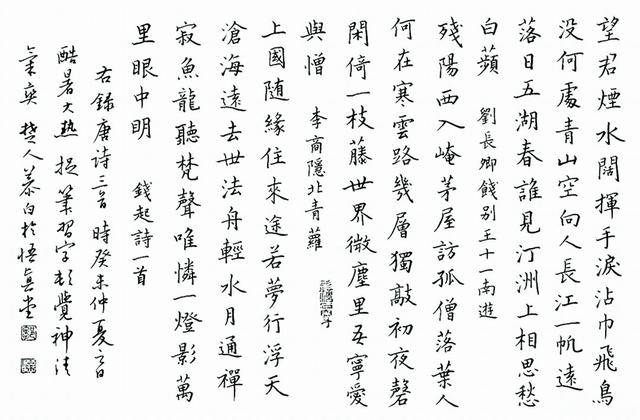 望君煙水闊揮手淚沾巾飛鳥
没何處青山空向人長江一帆遠
落日五湖春誰見汀洲上相思愁
白蘋 劉長卿餞别王十一南遊
殘陽西入崦茅屋訪孤僧落葉人
何在寒雲路幾層獨敲初夜磬
閑倚一枝藤世界微塵里吾寧愛
與憎 李商隱北青蘿
上國随緣住來途若夢行浮天
滄海遠去世法舟輕水月通禪
寂魚龍聽梵聲唯憐一燈影萬
里眼中明 錢起詩一首
右錄唐詩三首 時癸未仲夏日
酷暑大熱捉筆習字頓覺神清
氣爽 楚人慕白於悟真堂